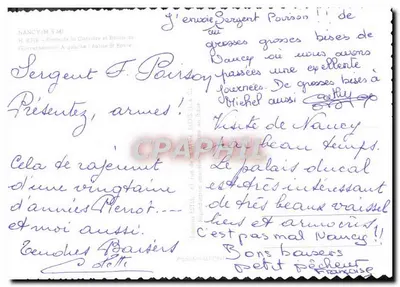 NANCY (M.&M)
Sergent F. Poirson
Présentez, armes!
Cela te rajeunit
d'une vingtaine
d'années Pierrot....
et moi aussi.
Tendres Baisers
J'envoie Sergent Poirson!! de
grosses grosses bises de
Nancy où nous avons
passées une excellente
journées. De grosses bises à
Michel aussi Cathy
Visite de Nancy
par beau temps.
Le palais ducal
est très intéressant
de très beaux vaisseliers
et armoires
C'est pas mal Nancy!!
Bons baisers
petit pêcheur
Françoise
CPAPHIL